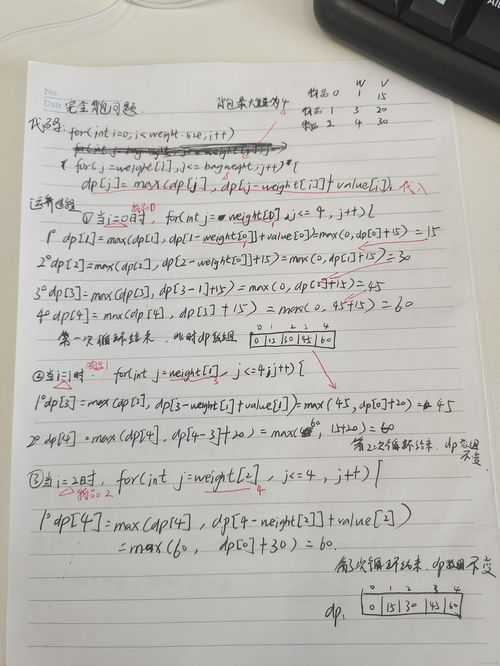 No.
Date 完全背包问题.
背包最大重量为4
W V
物品0 1 15
物品1 3 20
物品2 4 30
代码: for(int i=0; i<weight.size; i++)
for(j=weight[i], j<=bagweight; j++){
dp[j]=max(dp[j], dp[j-weight[i]]+value[i]); 代入
运算过程
物品0
①当i=0时, for(int j=weight[0], j<=4, j++){
1° dp[1]=max(dp[1], dp[1-weight[0]]+value[0])=max(0, dp[0]+15)=15
2° dp[2]=max(dp[2], dp[2-weight[0]]+15)=max(0, dp[1]+15)=30
3° dp[3]=max(dp[3], dp[3-1]+15)=max(0, dp[2]+15)=45
4° dp[4]=max(dp[4], dp[3]+15)=max(0, 45+15)=60
第一次循环结束. 此时dp数组
0 1 2 3 4
0 15 30 45 60
物品1
②当i=1时, for(int j=weight[1], j<=4; j++){
3
1° dp[3]=max(dp[3], dp[3-weight[1]+value[1])=max(45, dp[0]+20)=45
2° dp[4]=max(dp[4], dp[4-3]+20)=max(60, 15+20)=60
第2次循环结束. dp数组不变
③当i=2时, for(int j=weight[2], j<=4, j++){
物品2 4
1° dp[4]=max(dp[4], dp[4-weight[2]]+value[2])
=max(60, dp[0]+30)=60.
第3次循环结束. dp数组不变
0 1 2 3 4
dp: 0 15 30 45 60